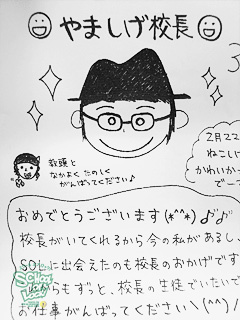 やましげ校長
教頭と
なかよく たのしく
がんばってください♪
2月22
ねこに
かわいかっ
でー
おめでとうございます(*^^*)♪♪
校長がいてくれるから今の私があるし、
SOLに出会えたのも校長のおかげです
からもずっと、校長の生徒でいたいで
お仕事がんばってください\(^^)/